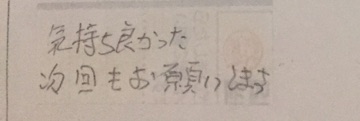 気持ち良かった
次回もお願いします